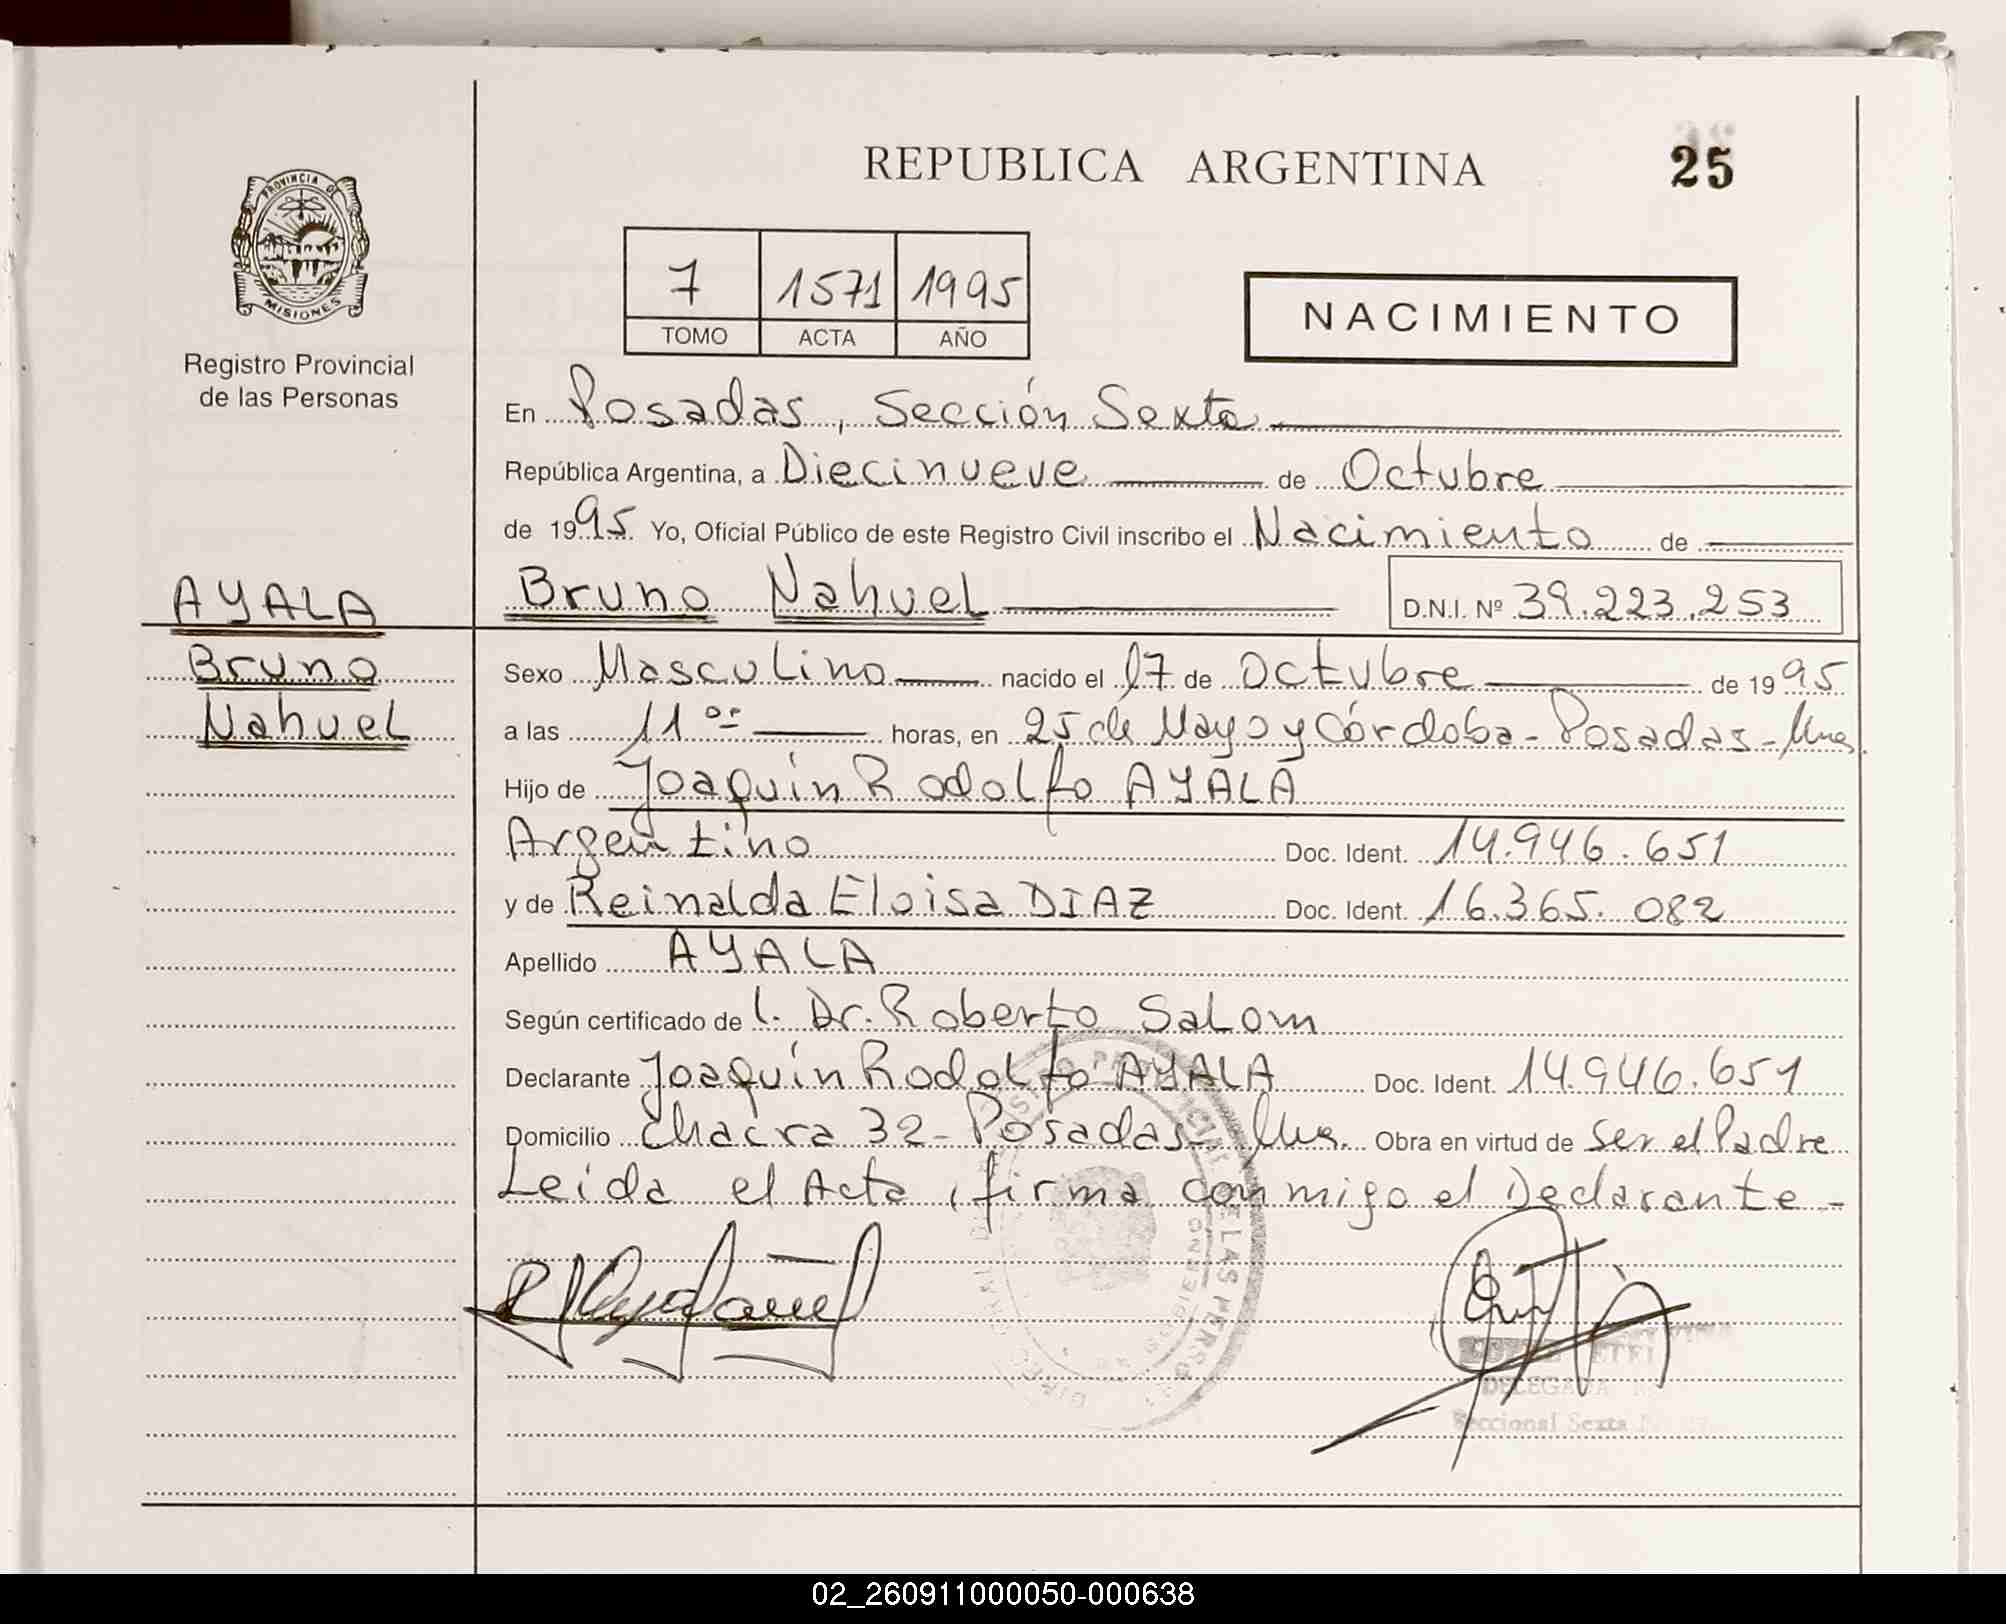 REPUBLICA ARGENTINA
25
PROVINCIA DE
MISIONES
Registro Provincial
de las Personas
7 1571 1995
TOMO ACTA AÑO
NACIMIENTO
En Posadas, Sección Sexta
República Argentina, a Diecinueve de Octubre
de 1995 Yo, Oficial Público de este Registro Civil inscribo el Nacimiento de
AYALA
Bruno
Nahuel
Bruno Nahuel D.N.I. Nº 39.223.253
Sexo Masculino nacido el 17 de Octubre de 1995
a las 11 horas, en 25 de Mayo y Córdoba - Posadas - Mnes.
Hijo de Joaquín Rodolfo AYALA
Argentino Doc. Ident. 14.946.651
y de Reinalda Eloisa DIAZ Doc. Ident. 16.365.082
Apellido AYALA
Según certificado de l. Dr. Roberto Salom
Declarante Joaquín Rodolfo AYALA Doc. Ident. 14.946.651
Domicilio Chacra 32 - Posadas - Mns. Obra en virtud de ser el Padre
Leida el Acta, firma conmigo el Declarante -
DELEGADA
Seccional Sexta
02_260911000050-000638